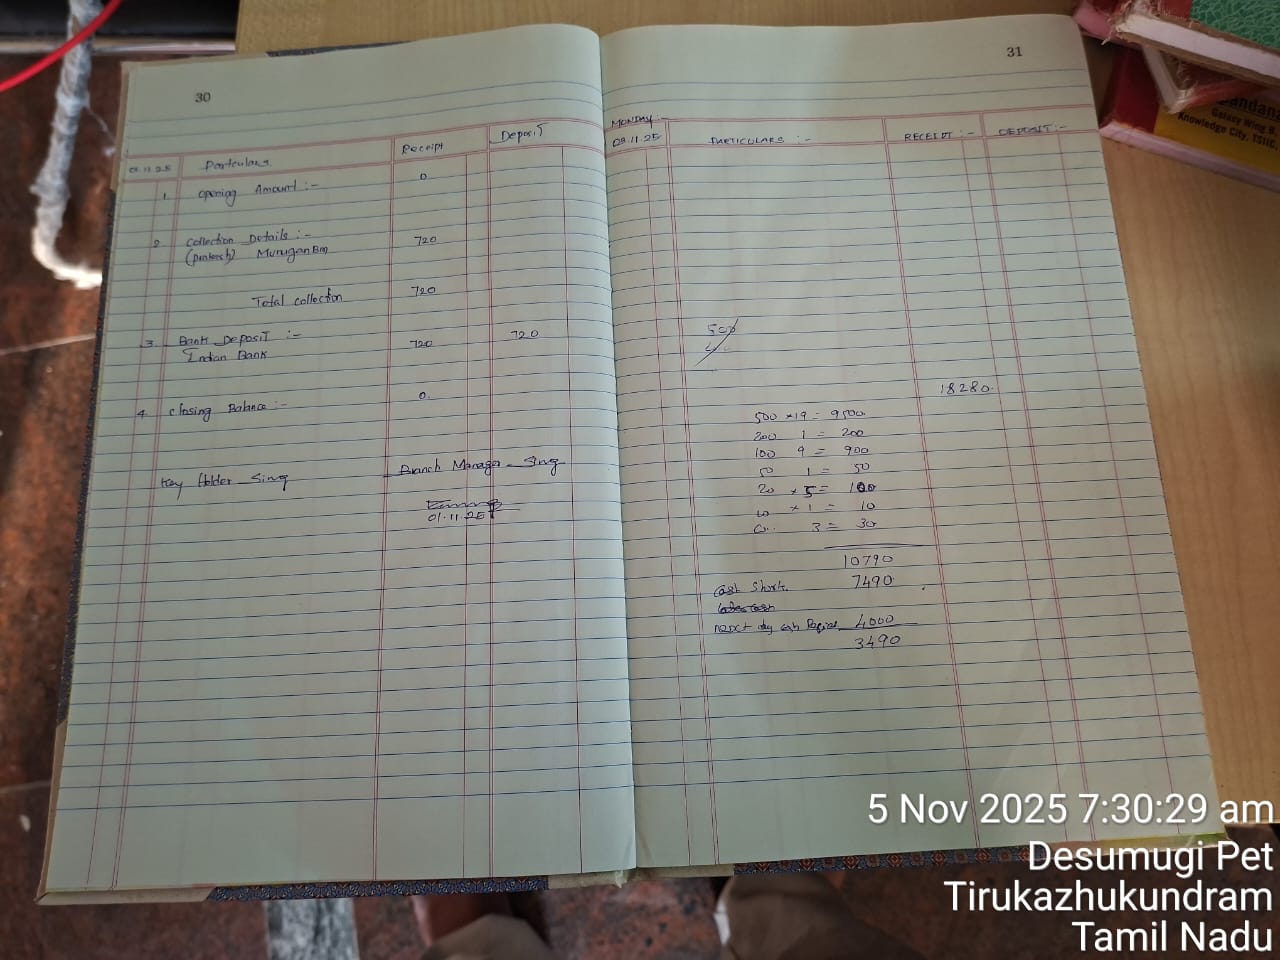 30
01.11.25 Particulars Receipt Deposit
1 Opening Amount :- 0
2 Collection Details :- 720
(prakash) Murugan Bm
Total collection 720
3. Bank Deposit :- 720 720
Indian Bank
4. Closing Balance :- 0.
Key Holder Sing Branch Manager Sing
01.11.25
31
MONDAY :-
03.11.25 PARTICULARS :- RECEIPT :- DEPOSIT :-
500
18280.
500 × 19 = 9500
200 1 = 200
100 9 = 900
50 1 = 50
20 × 5 = 100
10 × 1 = 10
3 = 30
10790
Cash Short. 7490
next day cash 4000
3490
Galaxy Wing B
Knowledge City, TSIIC,
5 Nov 2025 7:30:29 am
Desumugi Pet
Tirukazhukundram
Tamil Nadu